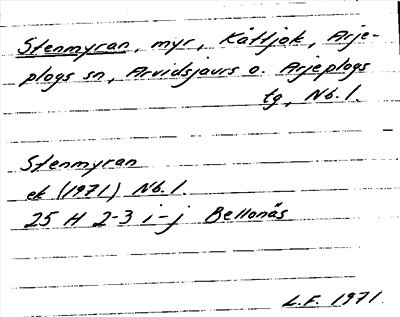 Stenmyran, myr, Kåtljok, Arje-
plogs sn, Arvidsjaurs o. Arjeplogs
tg, Nb. l.
Stenmyran
ek (1971) Nb. l.
25 H 2-3 i-j Bellonäs
L.F. 1971.